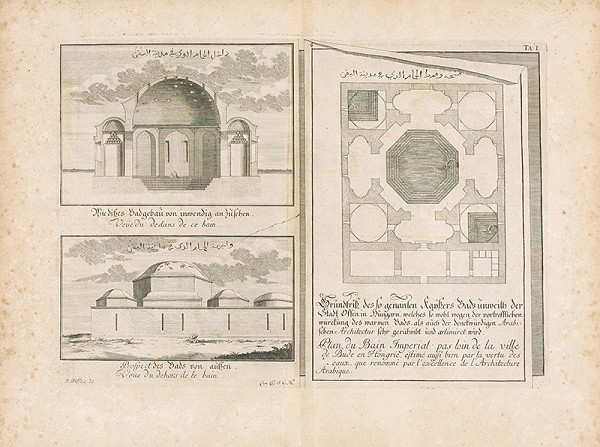 الحمام الذي في مدينة
Wie dises Badgebäu von inwendig anzusehen.
Veuë du dedans de ce bain
الحمام الذي في مدينة
Prospect des Bads von außen.
Veuë du dehors de te bain
Ta. I
الحمام الذي في مدينة
Grundriß des so genanten Kaÿsers Bads unweith der
Stadt Ofen in Hungarn, welches so wohl wegen der vortrefflichen
würckung des warmen Bads, als auch der denckwürdigen Arabi-
schen Architectur sehr gerühmbt und æstimiret wird
Plan du Bain Imperial pas loin de la ville
de Bude en Hongrie, estimé aussi bien par la vertu des
eaux, que renommé par l'excellence de l'Architecture
Arabique.